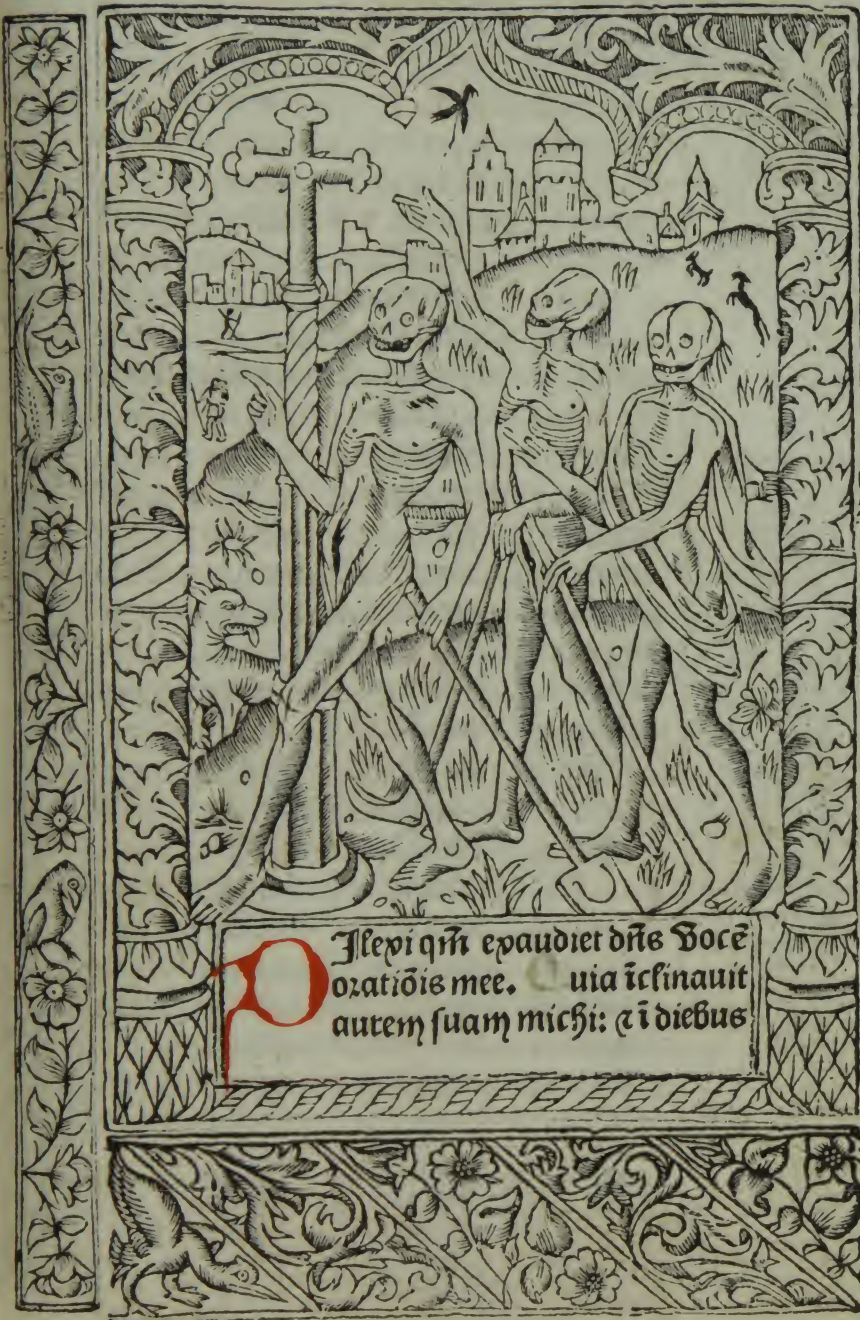 PIlexi qm̄ exaudiet dn̄s Vocē
oratiōis mee. Quia īclinauit
aurem suam michi: ⁊ ī diebus